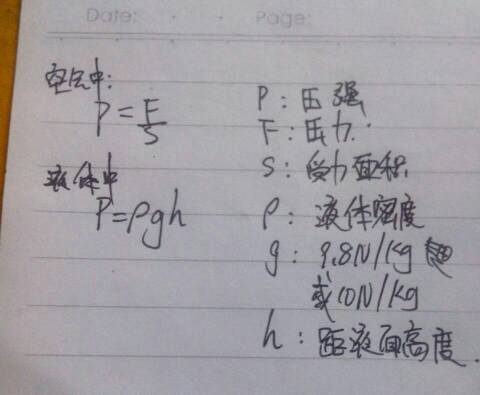 Date: Page:
空气中:
P = F/S
液体中
P=ρgh
P: 压强
F: 压力.
S: 受力面积.
ρ: 液体密度
g: 9.8N/kg
或10N/kg
h: 距液面高度.